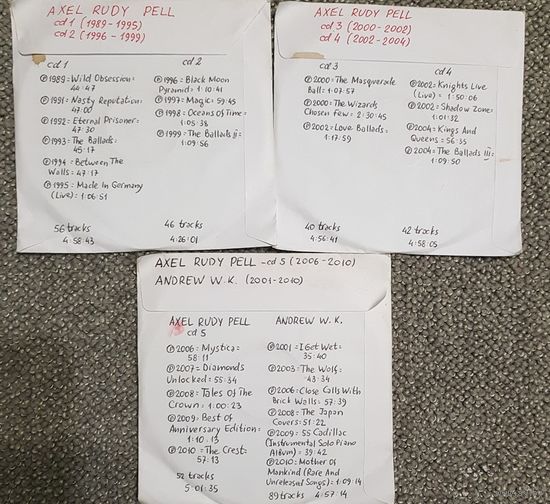 AXEL RUDY PELL
cd 1 (1989-1995)
cd 2 (1996-1999)
cd 1
℗1989=Wild Obsession:
44:47
℗1991=Nasty Reputation:
47:00
℗1992=Eternal Prisoner:
47:30
℗1993=The Ballads:
45:17
℗1994=Between The
Walls: 47:17
℗1995=Made In Germany
(Live): 1:06:51
56 tracks
4:58:43
cd 2
℗1996=Black Moon
Pyramid=1:10:41
℗1997=Magic=59:45
℗1998=Oceans Of Time:
1:05:38
℗1999=The Ballads II:
1:09:56
46 tracks
4:26:01
AXEL RUDY PELL
cd 3 (2000-2002)
cd 4 (2002-2004)
cd 3
℗2000=The Masquerade
Ball: 1:07:57
℗2000=The Wizards
Chosen Few: 2:30:45
℗2002=Love Ballads:
1:17:59
40 tracks
4:56:41
cd 4
℗2002=Knights Live
(Live) = 1:50:06
℗2002=Shadow Zone:
1:01:32
℗2004=Kings And
Queens=56:35
℗2004=The Ballads III:
1:09:50
42 tracks
4:58:05
AXEL RUDY PELL -cd 5 (2006-2010)
ANDREW W.K. (2001-2010)
AXEL RUDY PELL
cd 5
℗2006=Mystica=
58:11
℗2007=Diamonds
Unlocked=55:34
℗2008=Tales Of The
Crown=1:00:23
℗2009=Best Of
Anniversary Edition:
1:10:13
℗2010=The Crest:
57:13
52 tracks
5:01:35
ANDREW W.K.
℗2001=I Get Wet=
35:40
℗2003=The Wolf:
43:34
℗2006=Close Calls With
Brick Walls: 57:39
℗2008=The Japan
Covers: 51:22
℗2009=55 Cadillac
(Instrumental Solo Piano
Album)=39:42
℗2010=Mother Of
Mankind (Rare And
Unreleased Songs)=1:09:14
89 tracks 4:57:14